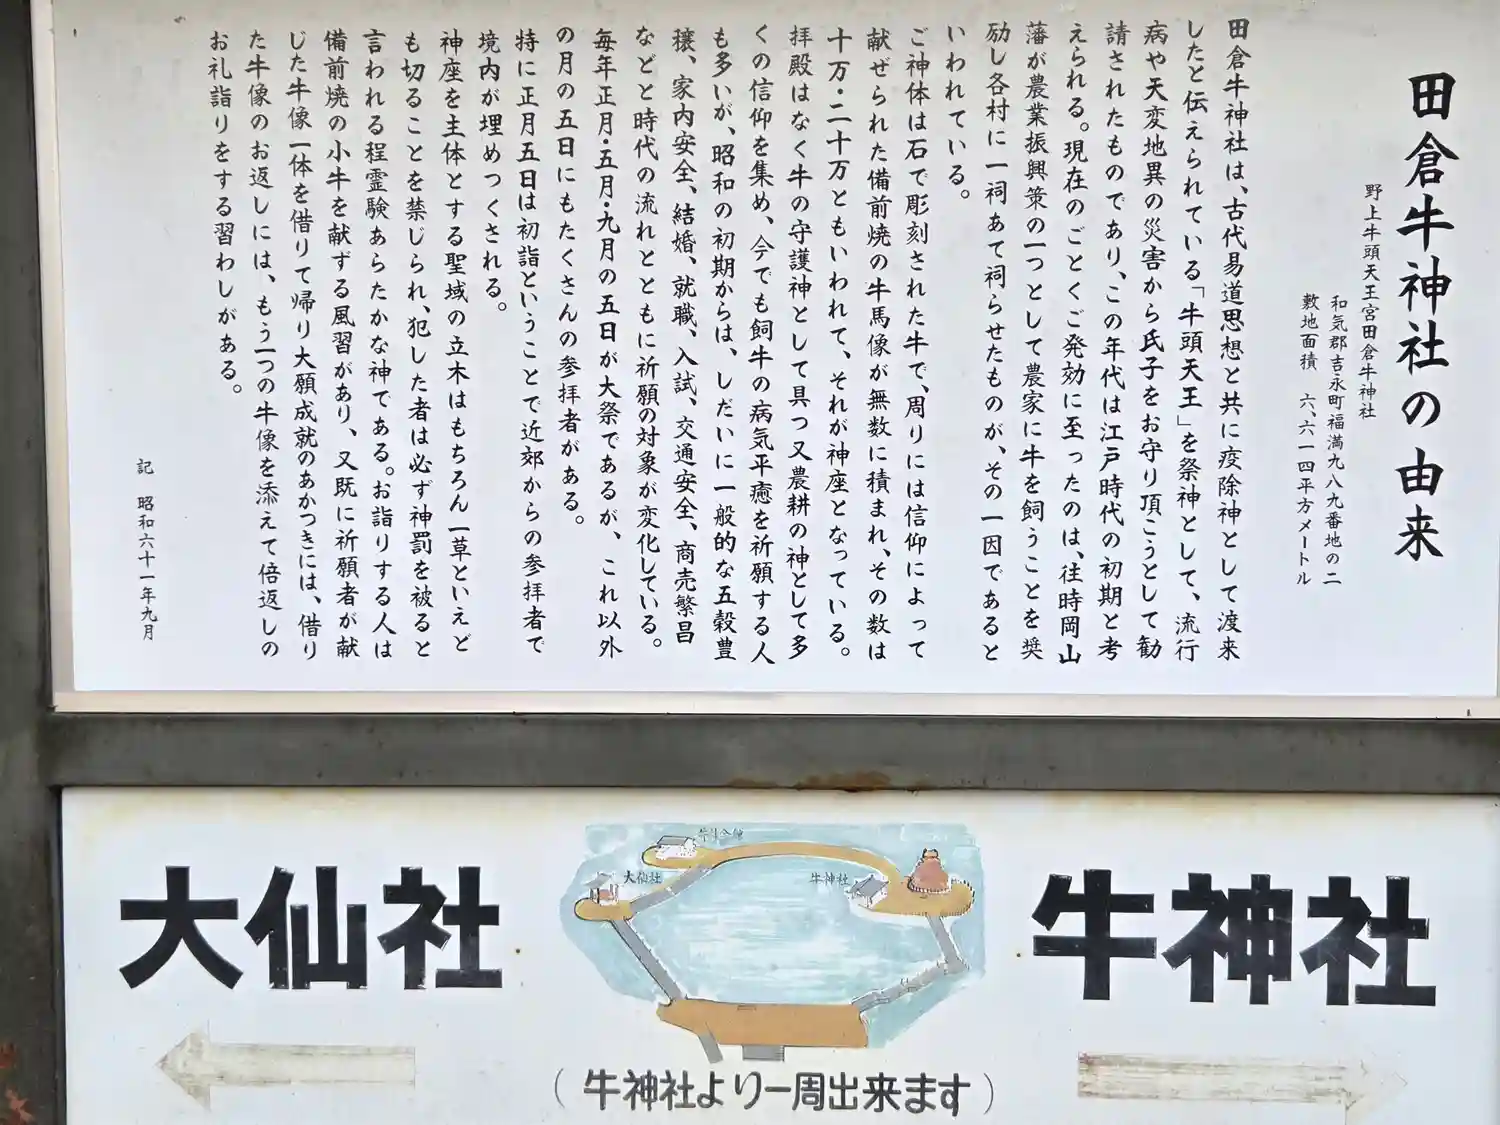 田倉牛神社の由来
野上牛頭天王宮田倉牛神社
和気郡吉永町福満九八九番地の二
敷地面積　六、六一四平方メートル
田倉牛神社は、古代易道思想と共に疫除神として渡来
したと伝えられている「牛頭天王」を祭神として、流行
病や天変地異の災害から氏子をお守り頂こうとして勧
請されたものであり、この年代は江戸時代の初期と考
えられる。現在のごとくご発効に至ったのは、往時岡山
藩が農業振興策の一つとして農家に牛を飼うことを奨
励し各村に一祠あて祠らせたものが、その一因であると
いわれている。
ご神体は石で彫刻された牛で、周りには信仰によって
献ぜられた備前焼の牛馬像が無数に積まれ、その数は
十万・二十万ともいわれて、それが神座となっている。
拝殿はなく牛の守護神として具つ又農耕の神として多
くの信仰を集め、今でも飼牛の病気平癒を祈願する人
も多いが、昭和の初期からは、しだいに一般的な五穀豊
穰、家内安全、結婚、就職、入試、交通安全、商売繁昌
などと時代の流れとともに祈願の対象が変化している。
毎年正月・五月・九月の五日が大祭であるが、これ以外
の月の五日にもたくさんの参拝者がある。
特に正月五日は初詣ということで近郊からの参拝者で
境内が埋めつくされる。
神座を主体とする聖域の立木はもちろん一草といえど
も切ることを禁じられ、犯した者は必ず神罰を被ると
言われる程霊験あらたかな神である。お詣りする人は
備前焼の小牛を献ずる風習があり、又既に祈願者が献
じた牛像一体を借りて帰り大願成就のあかつきには、借り
た牛像のお返しには、もう一つの牛像を添えて倍返しの
お礼詣りをする習わしがある。
記　昭和六十一年九月
大仙社
牛神社
大仙社
牛神社
(牛神社より一周出来ます)